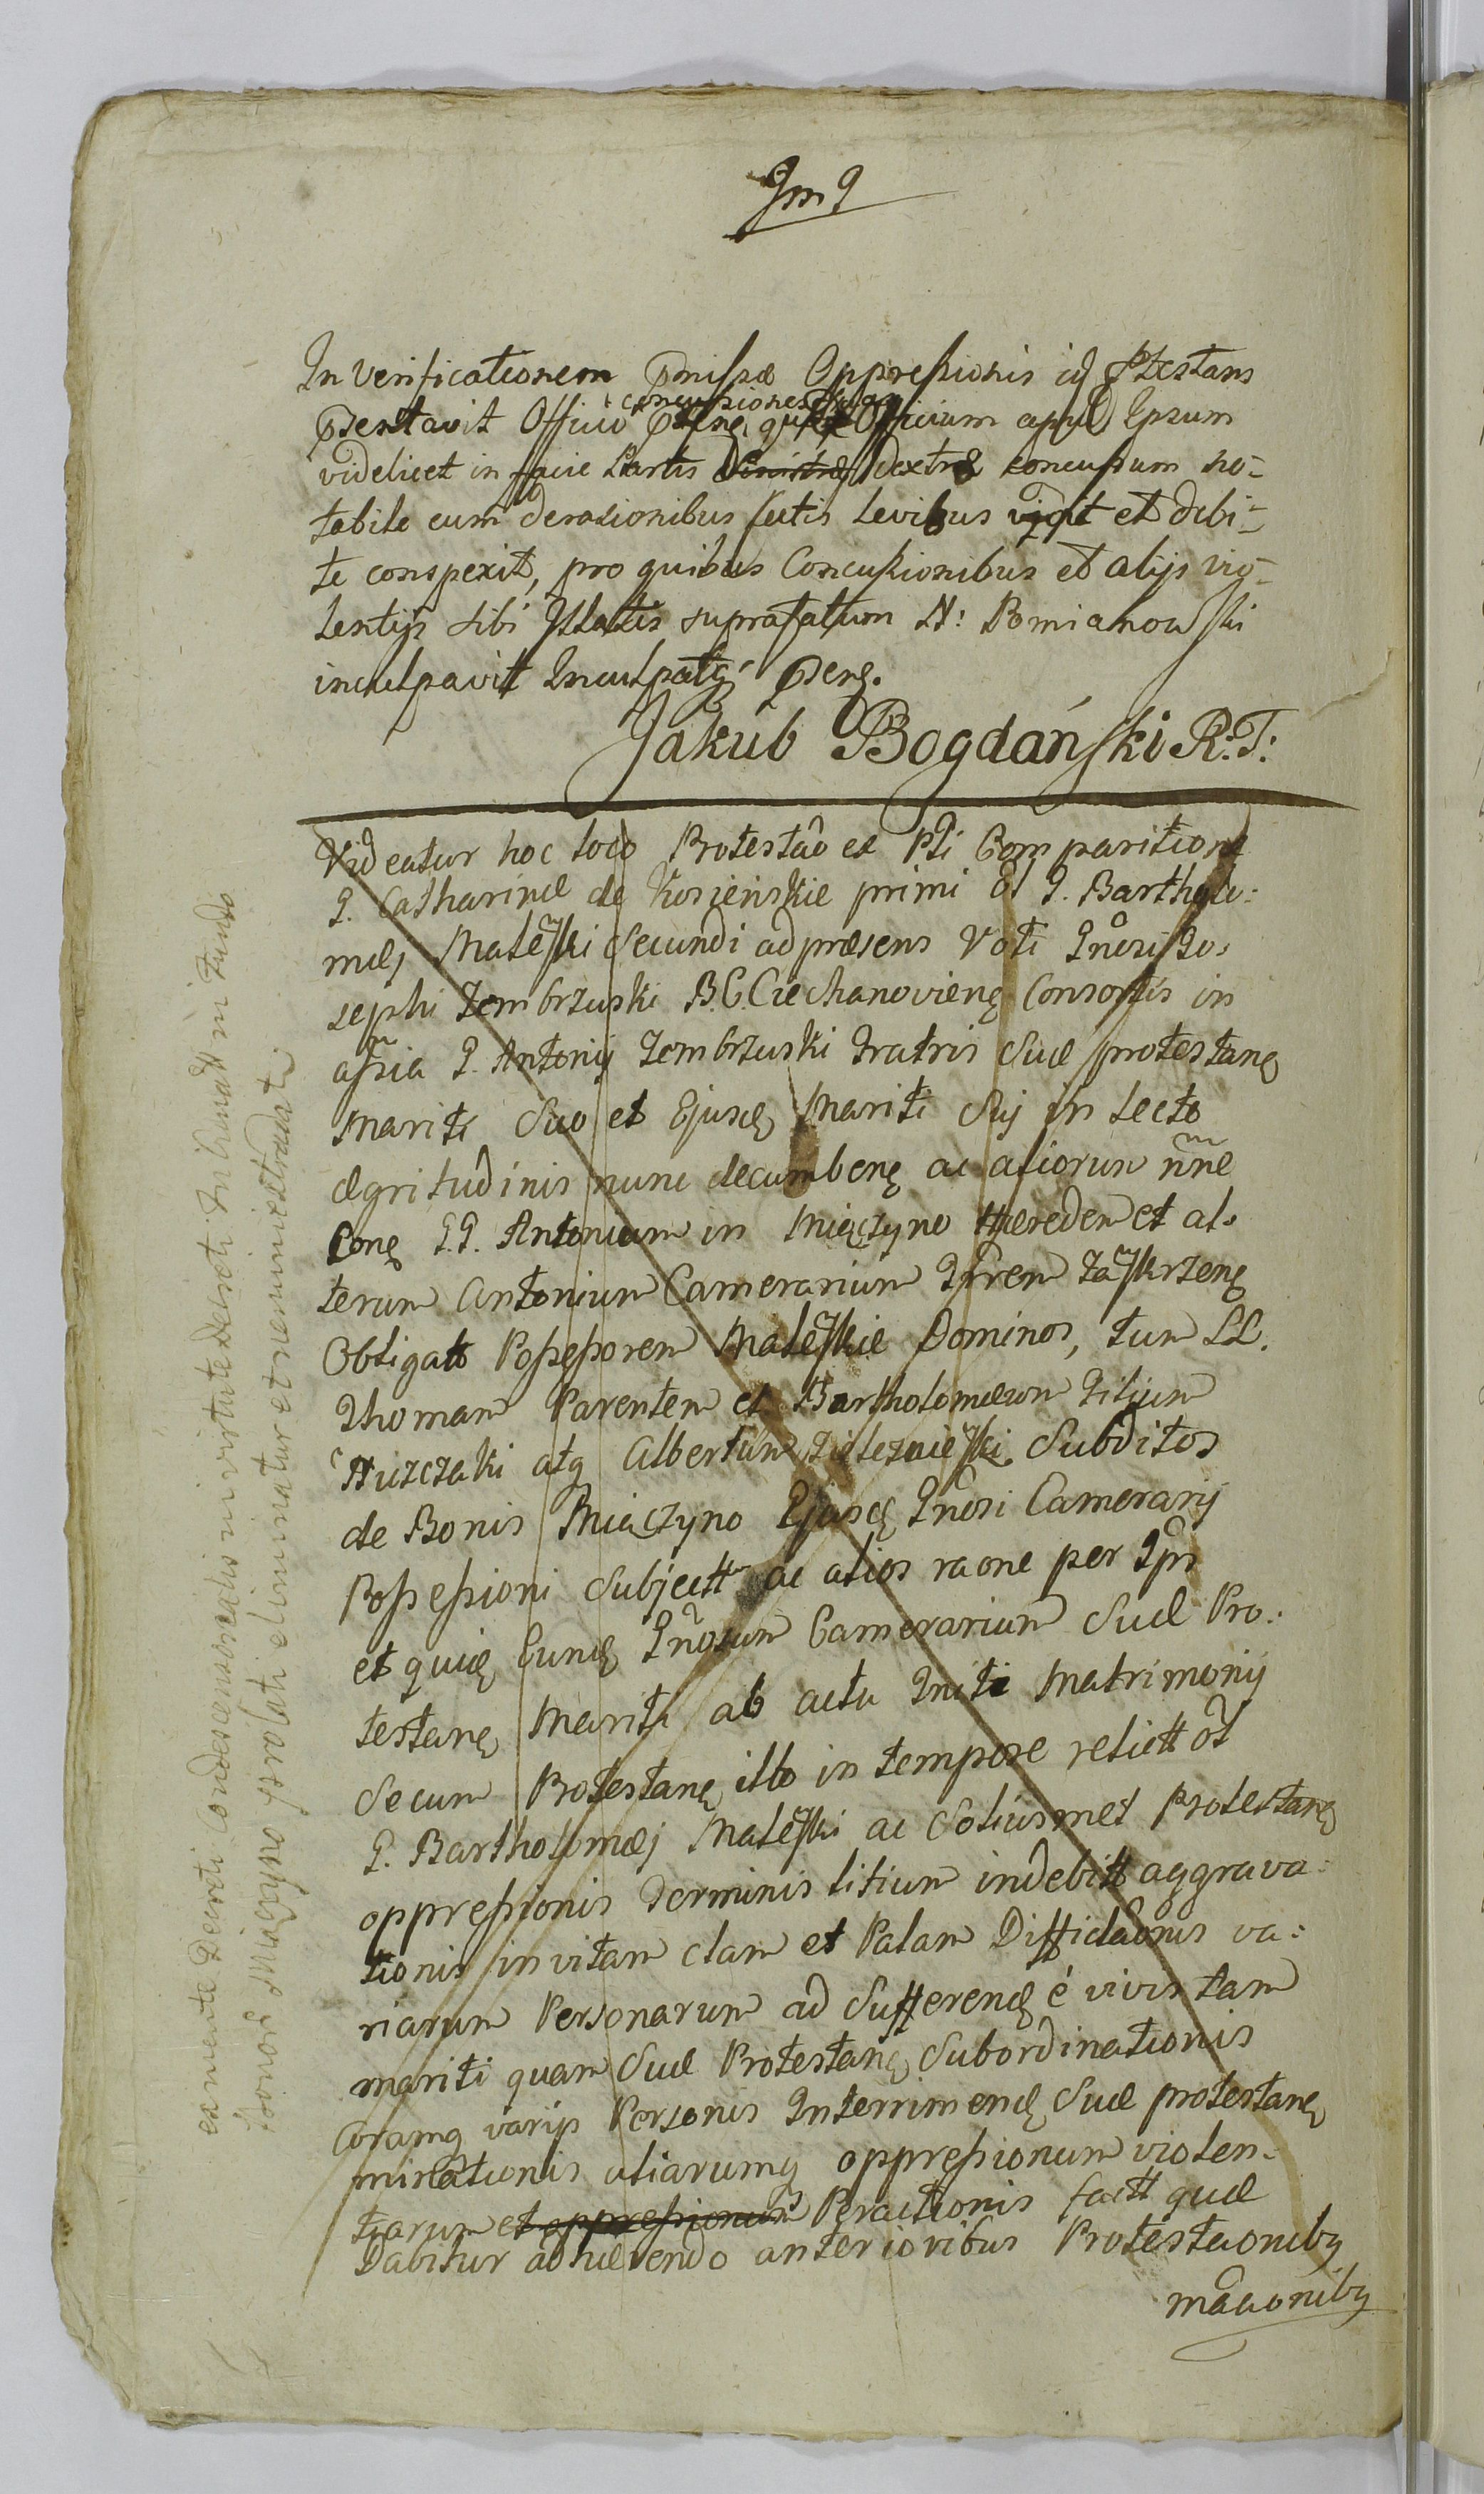 In Verificationem Oppressionis Ptestans
concussiones
Officio Officium apud Ipsum
videlicet in facie Partis Sinistræ Dextræ concussum no-
tabile cum derasionibus cutis levibus vidit et debi-
te conspexit, pro quibus Concussionibus et alijs vio-
lentijs sibi Illatis suprafatum N: Pomianowski
inculpavit
Jakub Bogdański R:T:
Videatur hoc loco Protestao ex Pti Comparitione
G. Catharinæ de Kosieńskie primi et G. Bartholo:
mæj Maleski secundi ad præsens Voti Gnosi Jo-
sephi Zembrzuski B.C. Ciechanovien Consortis in
assia G. Antonij Zembrzuski Fratris Suæ protestanę
Mariti suo et Ejusdę Mariti sui in lecto
ægritudinis nunc decumbenę ac aliorum nne
Conę G.G. Antonium in Miączyno Hæredem et al-
terum Antonium Camerarium Tfrem Zaskrzenę
Obligato Possessorem Maleskie Dominos, tum LL.
Thomam Parentem et Bartholomæum Filium
Huzczaki atq Albertum Subditos
de Bonis Miączyno Ejusdę Gnosi Camerarij
Possessioni Subjectt ac alios raone per Ipm
et quidę Eundę Gnosum Camerarium Suæ Pro:
testanę Mariti ab actu Initi Matrimonij
Secum Protestanę illo in tempore relictt ol
G. Bartholomæj Maleski ac Soliusmet Protestanę
oppressionis Terminis litium indebitt aggrava:
tionis in vitam clam et Palam Diffidaonis va:
riarum Personarum ad Sufferendę é vivis tam
mariti quam Suæ Protestanę Subordinationis
Coramq varijs Personis Interrimendę Suæ protestanę
minationis aliarumq oppressionum violen-
tiarum et oppressionum Peractionis factt quæ
Dabitur adhærendo anterioribus Protestaonibq
maonibq
ex mente Decreti Condescensorialis in virtute Decreti in fundo
bonor Miączyno prolati eliminatur et nemini extradat.